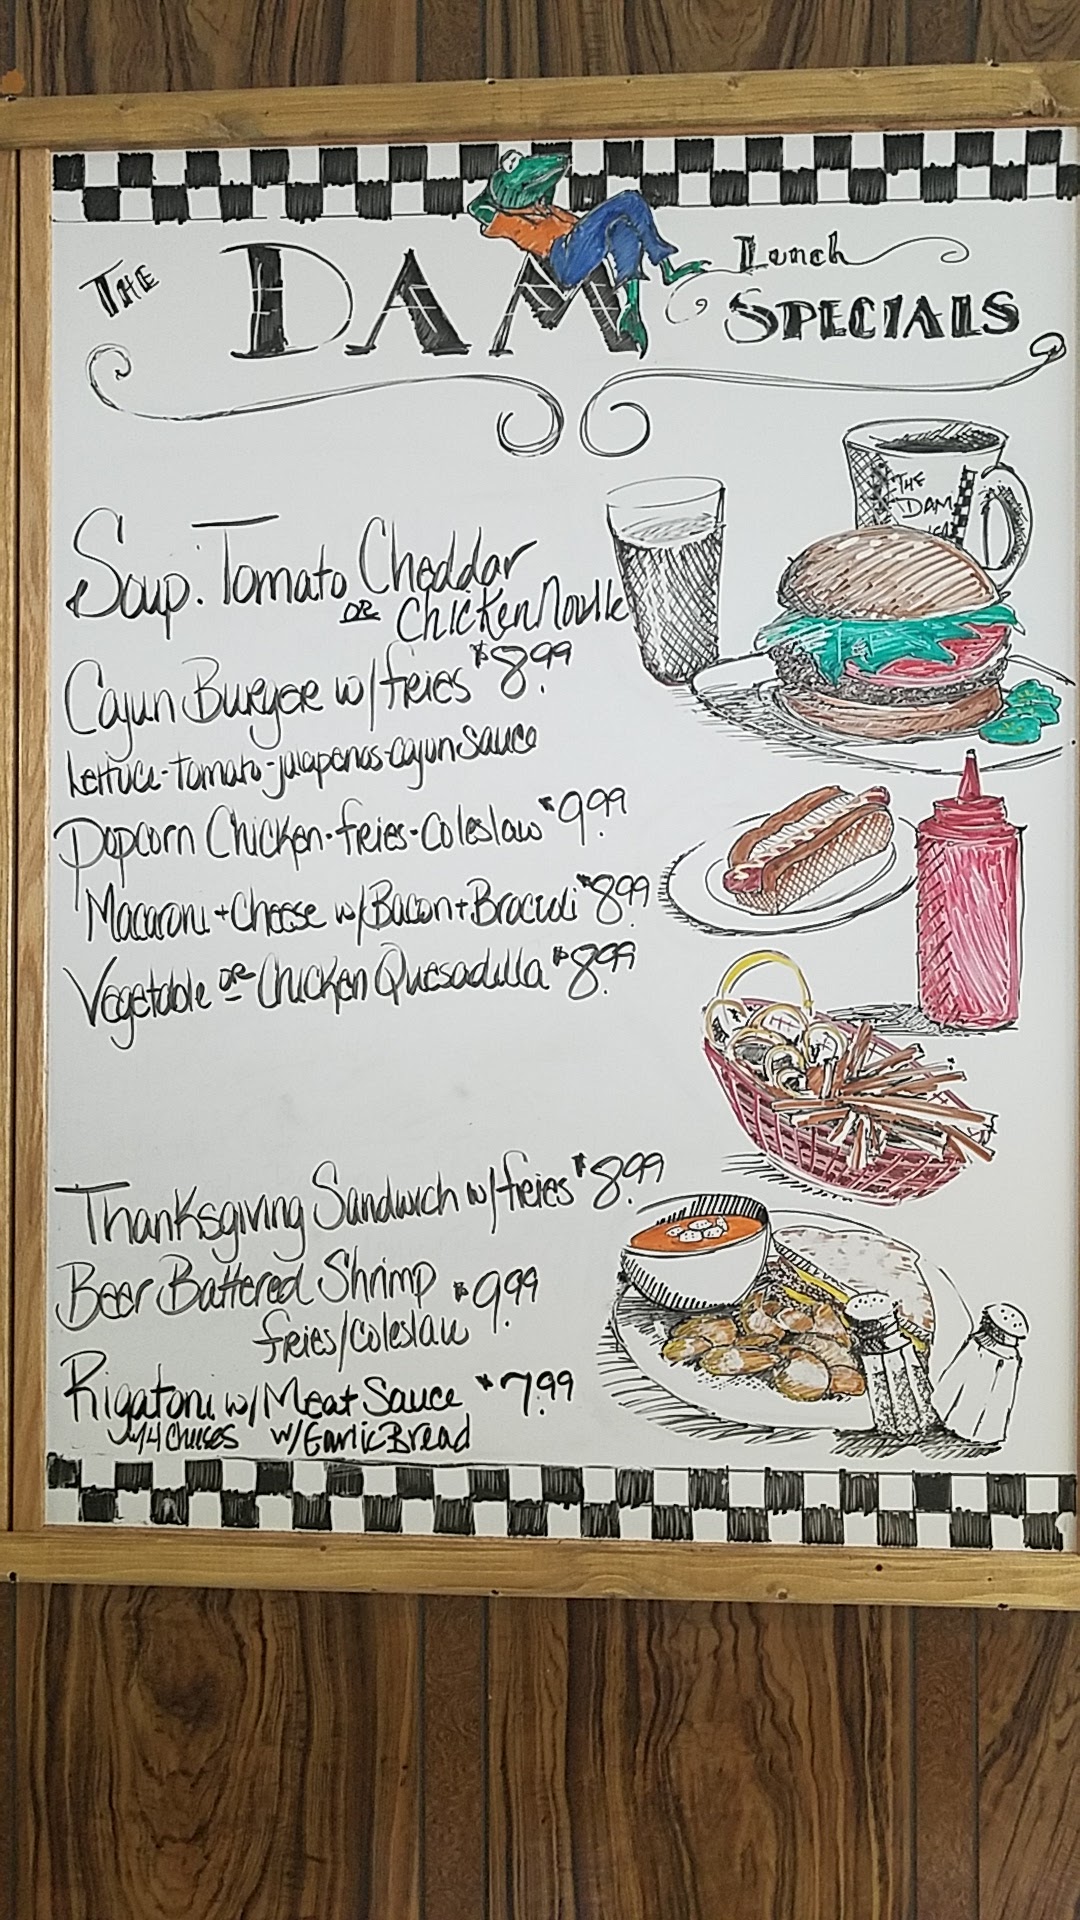 THE DAM Lunch SPECIALS
THE
DAM
Soup: Tomato Cheddar
OR Chicken Noodle
Cajun Burger w/fries $8.99
Lettuce-tomato-jalapenos-cajun sauce
Popcorn Chicken-fries-Coleslaw $9.99
Macaroni + Cheese w/Bacon + Broccoli $8.99
Vegetable OR Chicken Quesadilla $8.99
Thanksgiving Sandwich w/fries $8.99
Beer Battered Shrimp $9.99
fries/coleslaw
Rigatoni w/Meat Sauce $7.99
w/4 Cheeses w/Garlic Bread